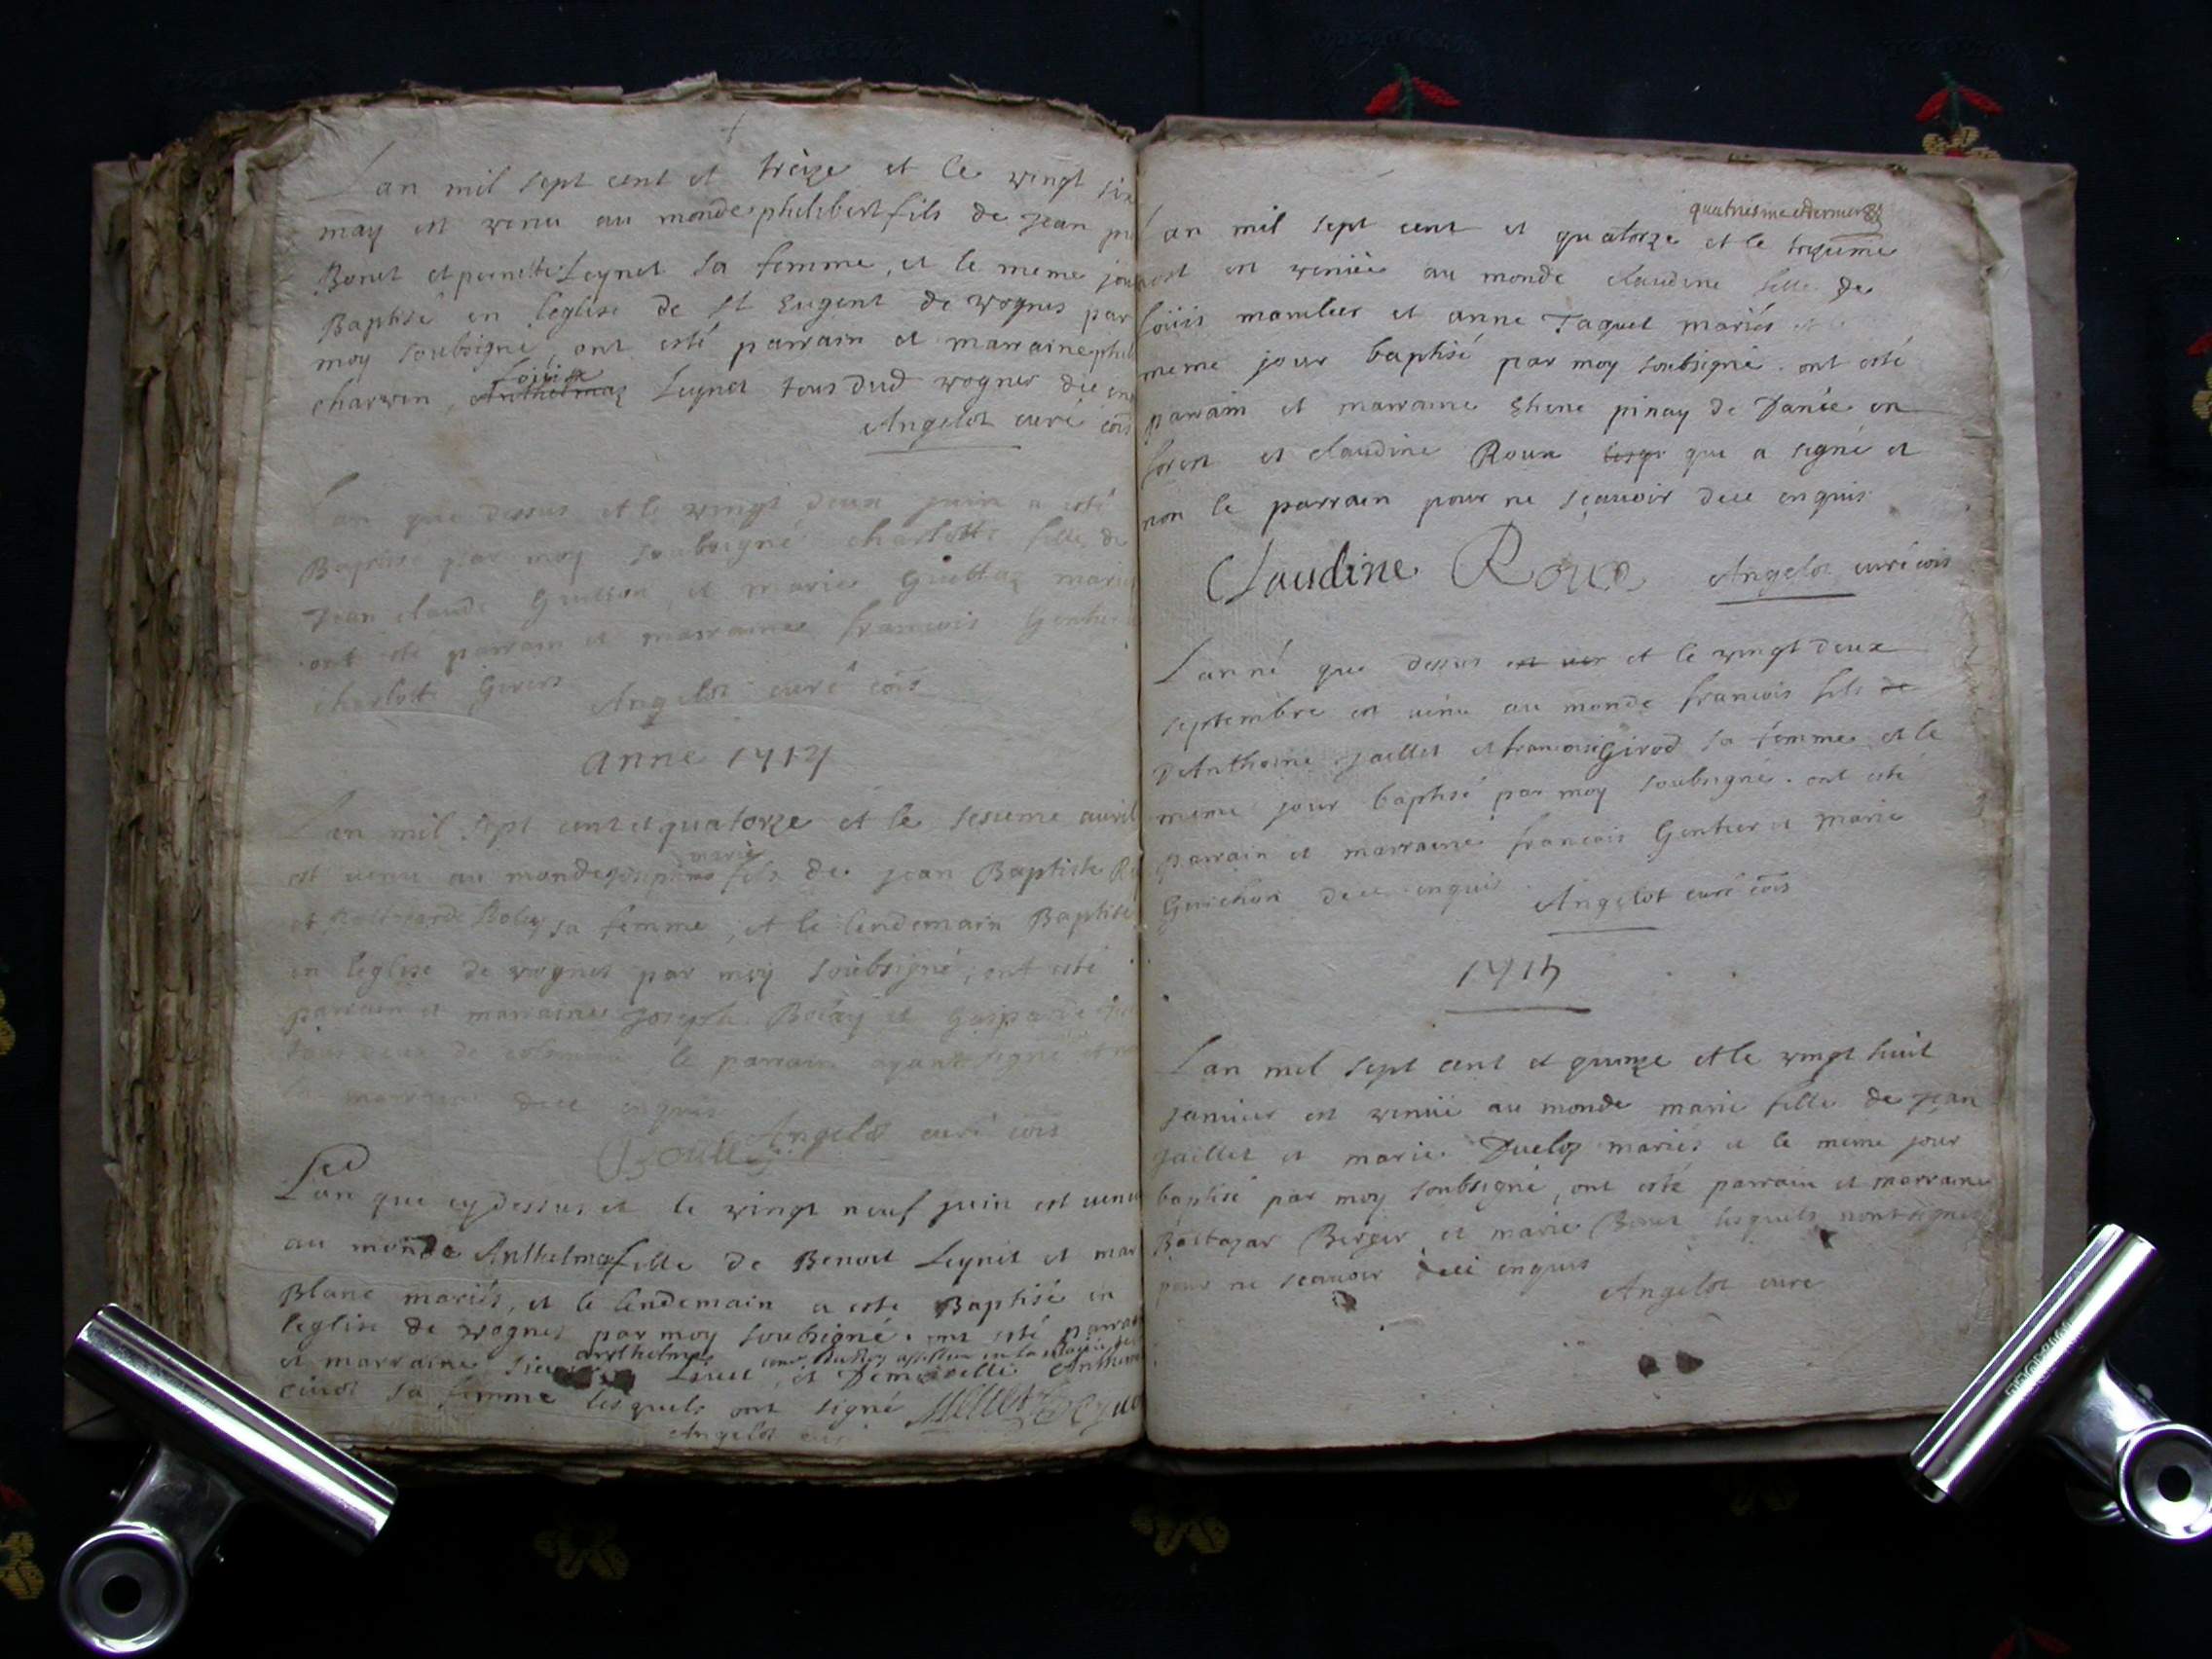 Lan mil sept cent et treize et le vingt six
may est venu au monde philibert fils de jean
Bonet et pernette Leynet sa femme, et le meme jou
Baptisé en leglise de st Eugent de vognes par
moy soubsigné, ont esté parrain et marraine phil
charvin, Loüise Leynet tous dud vognes de en
Angelot curé
Lan que dessus et le vingt deux juin a esté
Baptisé par moy soubsigné charlotte fille de
Jean claude et marie Guettaz mariés
ont été parrain et marraine francois Gentier
charlotte Angelot curé
anne 1714
Lan mil sept cent et quatorze et le sesieme avril
est venu au monde marie fils de jean Baptiste
et Boley sa femme, et le lendemain Baptisé
en leglise de vognes par moy soubsigné, ont esté
parrain et marraine joseph et Gasparde
tous deux de le parrain ayant signé et
la marraine de ce enquis
Angelot curé
Lan que cy dessus et le vingt neuf juin est venu
au monde Anthelma fille de Benoit Leynet et mar
Blanc mariés, et le lendemain a esté Baptisé en
leglise de vognes par moy soubsigné. ont esté parrai
et marraine sieur anthelme et Demoiselle Anthelma
sa femme lesquels ont signé
Angelot curé
quatriesme et dernier
Lan mil sept cent et quatorze et le tresieme
aost est veniüe au monde claudine fille de
loüis et anne Jaquet mariés et le
meme jour baptisé par moy soubsigné. ont esté
parrain et marraine Ehene pinay de Danée en
forest et claudine Roux lesqu que a signé et
non le parrain pour ne scavoir de ce enquis
Claudine Roux Angelot curé
Lanné que dessus est ven et le vingt deux
septembre est venu au monde francois fils de
DAnthoine jaillet et francoise Girod sa femme et le
meme jour baptisé par moy soubsigné. ont esté
parrain et marraine francois Gentier et marie
Guichon de ce enquis Angelot curé
1715
Lan mil sept cent et quinze et le vingt huit
janvier est veniüe au monde marie fille de jean
jaillet et marie Ducloz mariés et le meme jour
baptisé par moy soubsigné, ont esté parrain et marraine
Baltazar Berger et marie Bonet lesquels nont signes
pour ne scavoir de ce enquis
Angelot cure